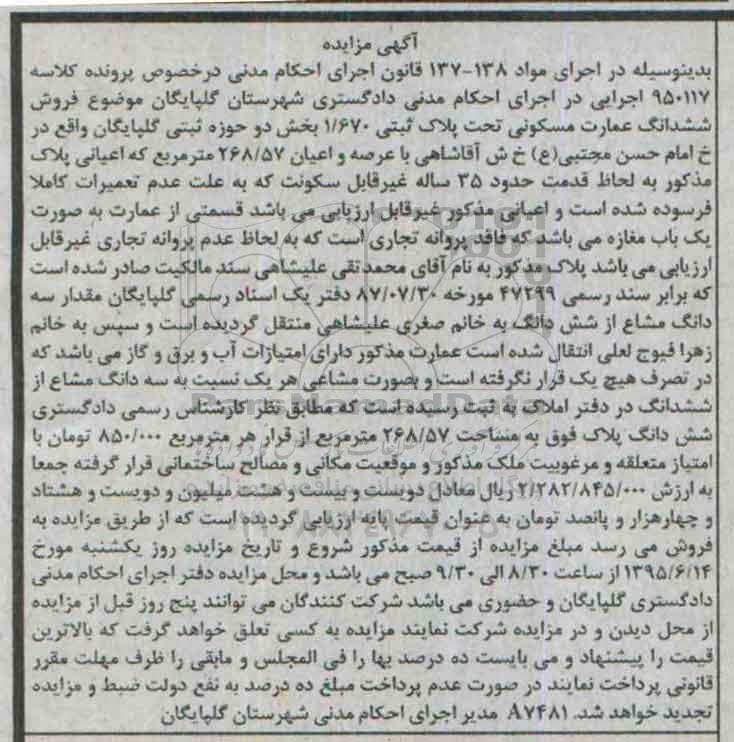 آگهی مزایده
بدینوسیله در اجرای مواد ۱۳۸-۱۳۷ قانون اجرای احکام مدنی درخصوص پرونده کلاسه
۹۵۰۱۱۷ اجرایی در اجرای احکام مدنی دادگستری شهرستان گلپایگان موضوع فروش
ششدانگ عمارت مسکونی تحت پلاک ثبتی ۱/۶۷۰ بخش دو حوزه ثبتی گلپایگان واقع در
خ امام حسن مجتبی(ع) خ ش آقاشاهی با عرصه و اعیان ۲۶۸/۵۷ مترمربع که اعیانی پلاک
مذکور به لحاظ قدمت حدود ۳۵ ساله غیرقابل سکونت که به علت عدم تعمیرات کاملا
فرسوده شده است و اعیانی مذکور غیرقابل ارزیابی می باشد قسمتی از عمارت به صورت
یک باب مغازه می باشد که فاقد پروانه تجاری است که به لحاظ عدم پروانه تجاری غیرقابل
ارزیابی می باشد پلاک مذکور به نام آقای محمدتقی علیشاهی سند مالکیت صادر شده است
که برابر سند رسمی ۴۷۲۹۹ مورخه ۸۷/۰۷/۳۰ دفتر یک اسناد رسمی گلپایگان مقدار سه
دانگ مشاع از شش دانگ به خانم صغری علیشاهی منتقل گردیده است و سپس به خانم
زهرا فیوج لعلی انتقال شده است عمارت مذکور دارای امتیازات آب و برق و گاز می باشد که
در تصرف هیچ یک قرار نگرفته است و بصورت مشاعی هر یک نسبت به سه دانگ مشاع از
ششدانگ در دفتر املاک به ثبت رسیده است که مطابق نظر کارشناس رسمی دادگستری
شش دانگ پلاک فوق به مساحت ۲۶۸/۵۷ مترمربع از قرار هر مترمربع ۸۵۰/۰۰۰ تومان با
امتیاز متعلقه و مرغوبیت ملک مذکور و موقعیت مکانی و مصالح ساختمانی قرار گرفته جمعا
به ارزش ۲/۲۸۲/۸۴۵/۰۰۰ ریال معادل دویست و بیست و هشت میلیون و دویست و هشتاد
و چهارهزار و پانصد تومان به عنوان قیمت پایه ارزیابی گردیده است که از طریق مزایده به
فروش می رسد مبلغ مزایده از قیمت مذکور شروع و تاریخ مزایده روز یکشنبه مورخ
۱۳۹۵/۶/۱۴ از ساعت ۸/۳۰ الی ۹/۳۰ صبح می باشد و محل مزایده دفتر اجرای احکام مدنی
دادگستری گلپایگان و حضوری می باشد شرکت کنندگان می توانند پنج روز قبل از مزایده
از محل دیدن و در مزایده شرکت نمایند مزایده به کسی تعلق خواهد گرفت که بالاترین
قیمت را پیشنهاد و می بایست ده درصد بها را فی المجلس و مابقی را ظرف مهلت مقرر
قانونی پرداخت نمایند در صورت عدم پرداخت مبلغ ده درصد به نفع دولت ضبط و مزایده
تجدید خواهد شد. A۷۴۸۱ مدیر اجرای احکام مدنی شهرستان گلپایگان
ParsNamadData